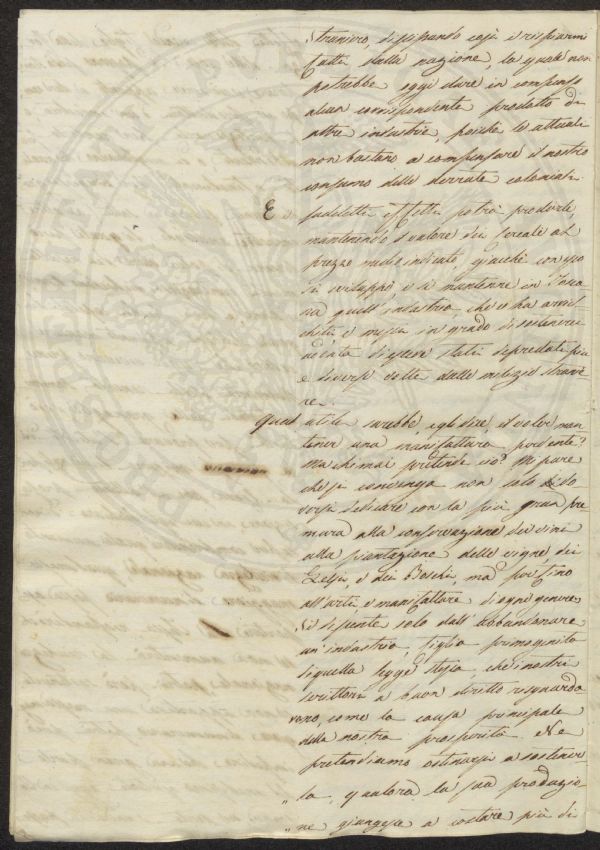 straniero, dissipando così i risparmi
fatti dalla nazione, la quale non
potrebbe oggi dare in compenso
alcun corrispondente prodotto di
altre industrie, poiché le attuali
non bastano a compensare il nostro
consumo delle derrate coloniali.
E i suddetti effetti potrà produrle,
mantenendo il valore dei cereali al
prezzo indicato, giacché con questo
si sviluppò e si mantenne in Tosca
na quell'industria, che ci ha
e messi in grado di sostenere
di essere stati depredati più
e diverse volte dalle milizie stranie
re.
Qual utile sarebbe, egli dice, il voler man
tener una manifattura perdente?
Ma chi mai pretende ciò? Mi pare
che si convenga non solo do
versi dedicare con la più gran pre
mura alla conservazione dei vini
alla piantagione delle vigne, dei
Gelsi, e dei Boschi, ma perfino
all'arti, e manifatture di ogni genere,
si dissente solo dall'abbandonare
un'industria, figlia primogenita
di quella legge stessa, che i nostri
scrittori a buon diritto risguarda
vano, come la causa principale
della nostra prosperità. Ne
pretendiamo ostinarsi a sostener
„ la, qualora la sua produzio
„ ne giungesse a costare più di